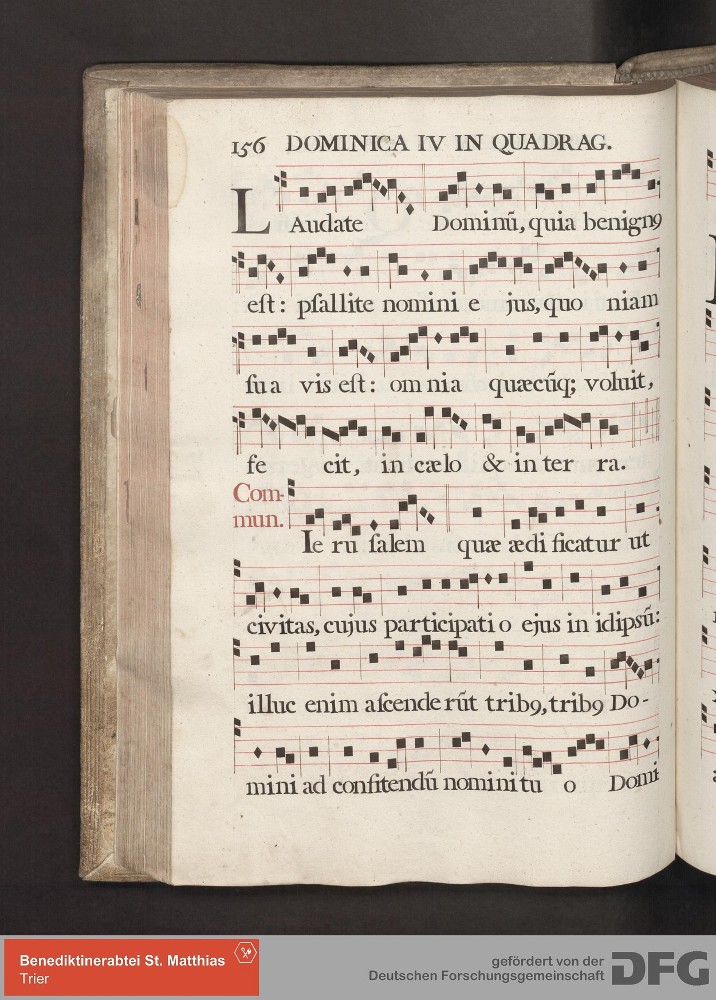 156 DOMINICA IV IN QUADRAG.
LAudate Dominū, quia benign9
est: psallite nomini e jus, quo niam
sua vis est: omnia quæcūq; voluit,
fe cit, in cælo & in ter ra.
Com-
mun.
Ie ru salem quæ ædi ficatur ut
civitas, cujus participati o ejus in idipsū:
illuc enim ascenderūt trib9, trib9 Do-
mini ad confitendū nomini tu o Domi-
Benediktinerabtei St. Matthias
Trier
gefördert von der
Deutschen Forschungsgemeinschaft
DFG